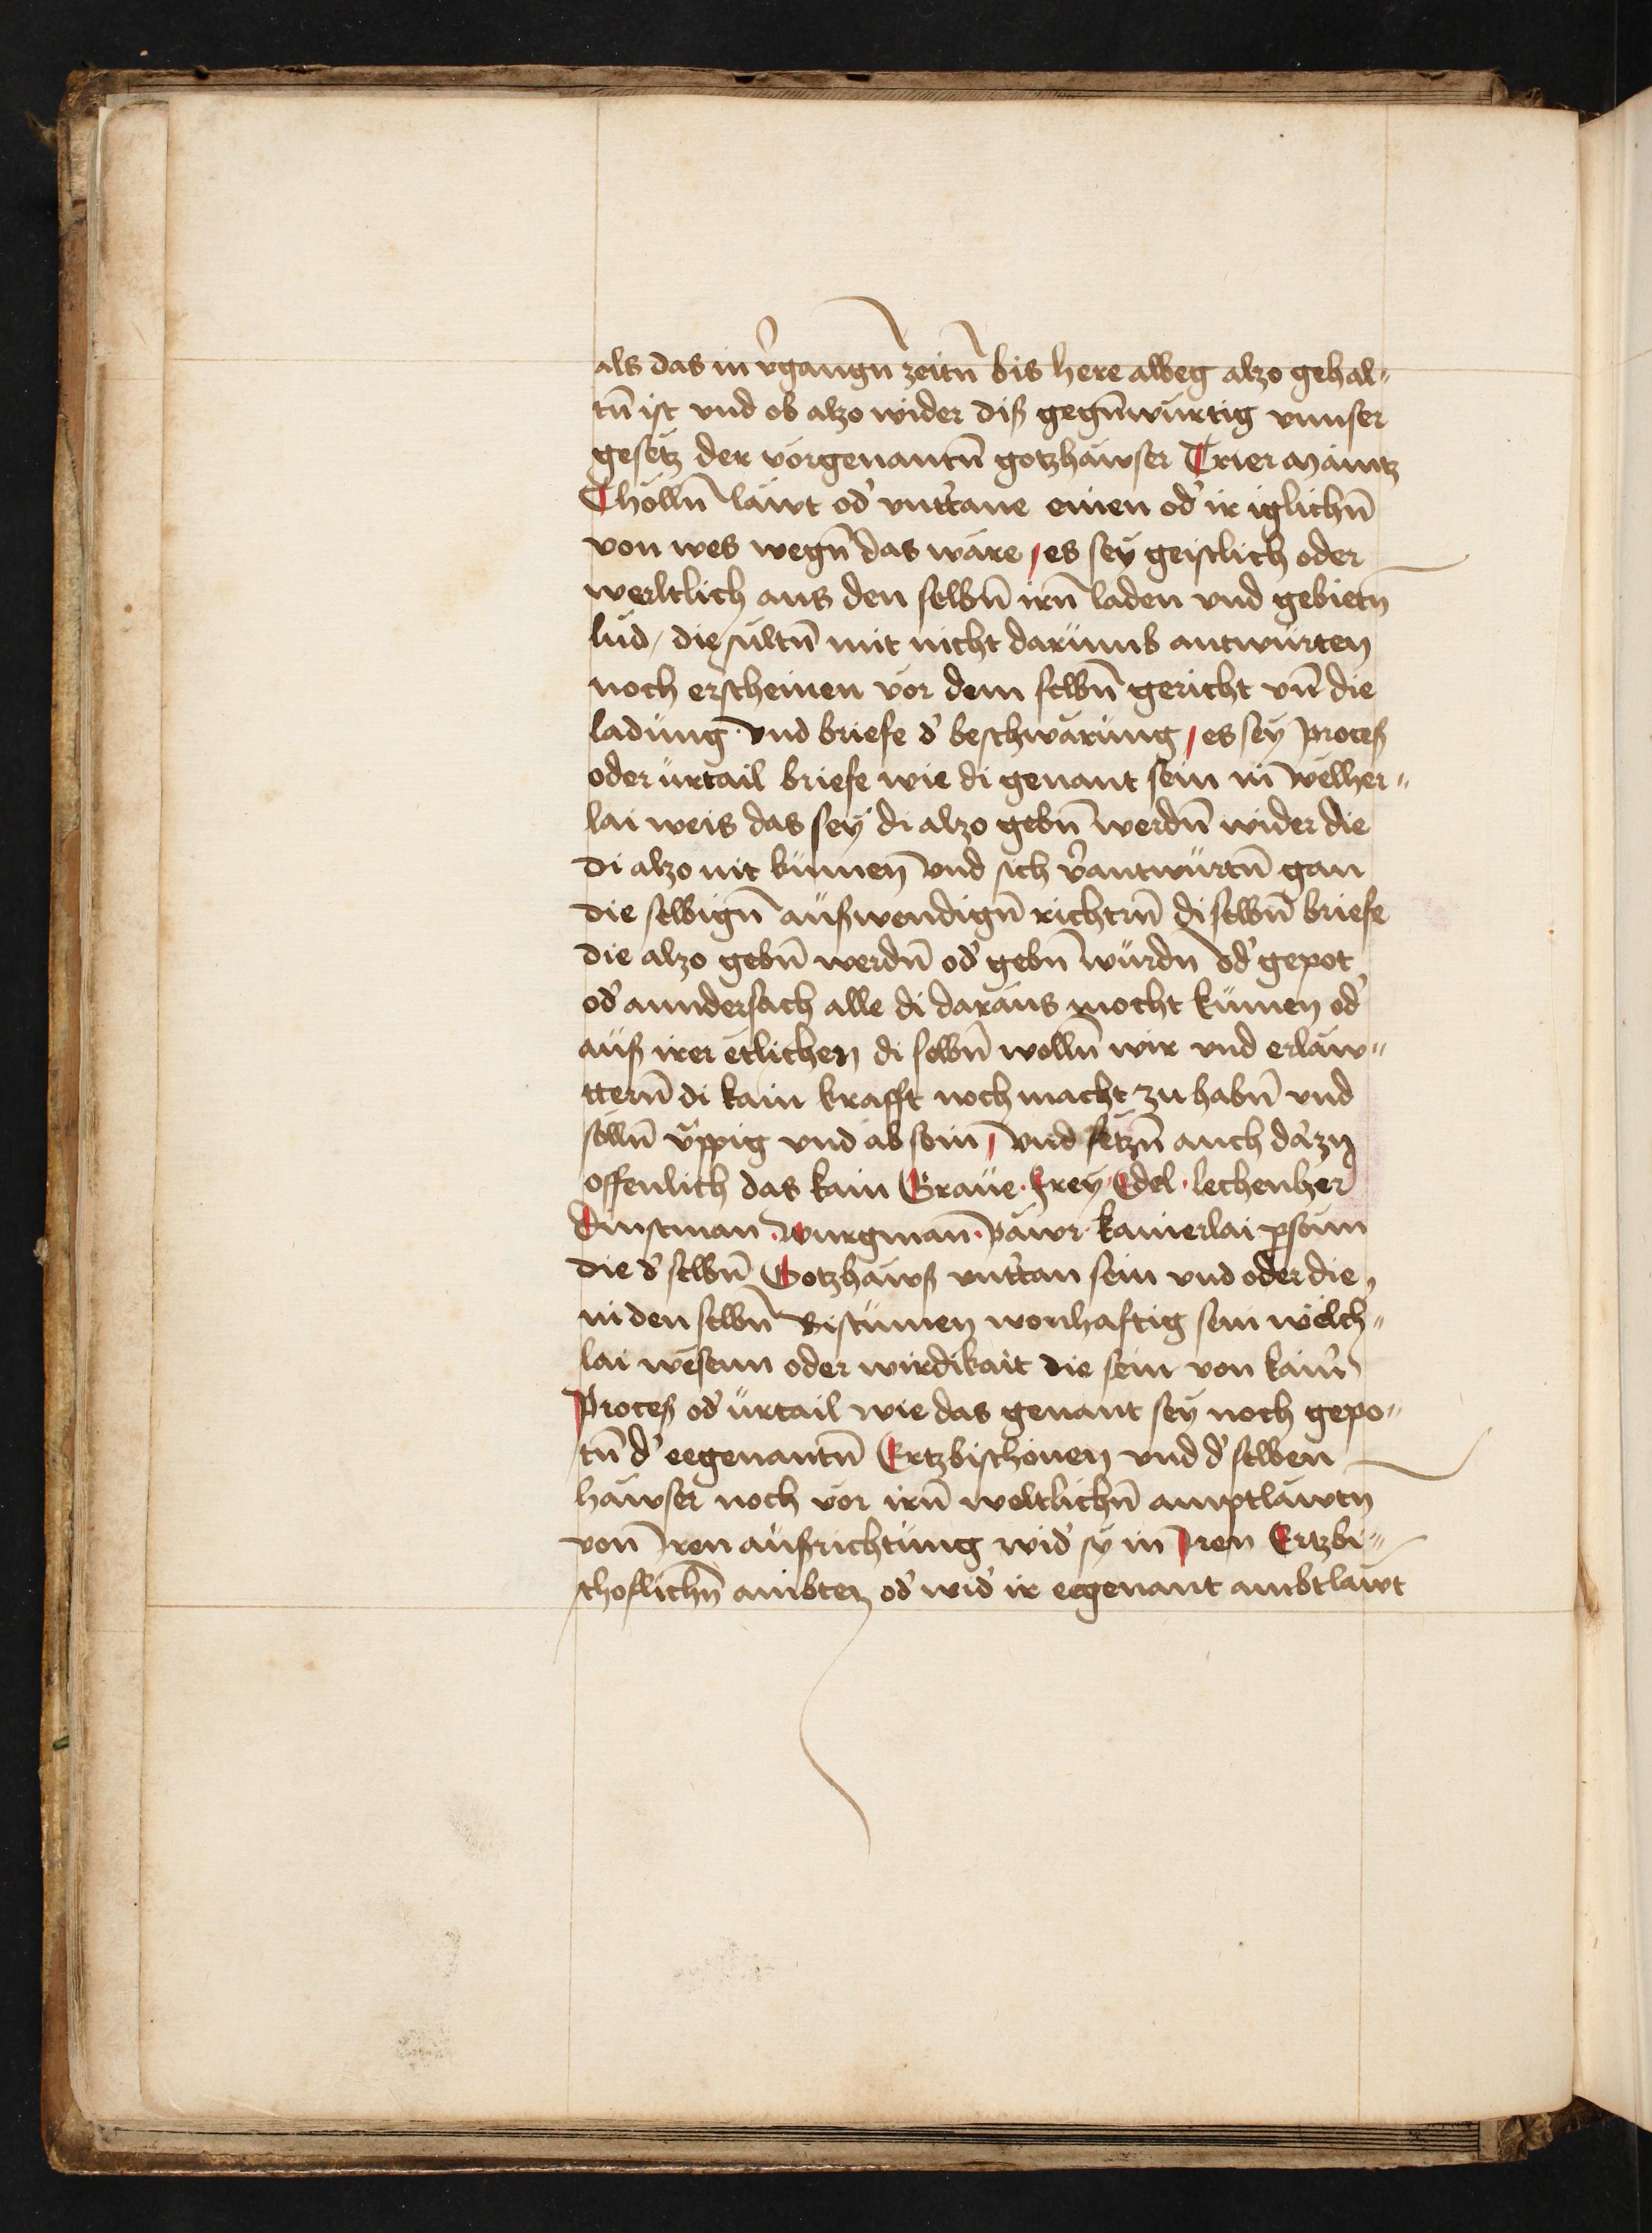 als das in v̉gangn̄ zeitn̄ bis here alweg alzo gehal„
tn̄ ist vnd ob alzo wider diß gegn̄würtig vnnser
gesetz der vorgenantn̄ gotzhäwser Trier Maintz
Chölln̄ läwt od̉ vntt̉ane einen od̉ ir iglichn̄
von wes wegn̄ das wäre / es sey geistlich oder
werltlich aus den selbn̄ irn̄ laden vnd gebietn
lüd / die sültn̄ mit nicht darümb antwürten
noch erscheinen vor dem selbn̄ gericht vn̄ die
ladüng · vnd briefe d̉ beschwärüng / es sey proceß
oder ürtail briefe wie di genant sein in welher„
lai weis das sey di alzo gebn̄ werdn̄ wider die
di alzo nit kümen̄ vnd sich v̉antwürtn̄ gan
die selbign̄ außwendign̄ richtrn̄ di selbn̄ briefe
die alzo gebn̄ werdn̄ od̉ gebn̄ würdn od̉ gepot
od̉ anndersach alle di daraus mocht kümen od̉
auß irer etlichen di selbn̄ wolln̄ wir vnd erläw„
ttern̄ di kain krafft noch macht zu habn̄ vnd
solln̄ v̈ppig vnd ab sein / vnd setzn̄ auch dazu
offenlich das kain Graüe · Frey · Edel · lechenher
Dinstman · Burgman̄ · Päwr · kainerlai ꝑsoün
die d̉ selbn̄ Gotzhäwß vntt̉an sein vnd oder die
in den selbn̄ Bistümen wonhaftig sein welch„
lai wesenn oder wirdikait die sein von kain̉
Proceß od̉ ürtail wie das genant sey noch gepo„
tn̄ d̉ eegenantn̄ Ertzbischouen vnd d̉ selben
häwser noch vor irn̄ weltlichn̄ amptläwtn
von̄ Iren aüfrichtüng wid̉ sy in Iren Ertzbi„
schoflichn̄ ambten od̉ wid̉ ir eegenant ambtläwt